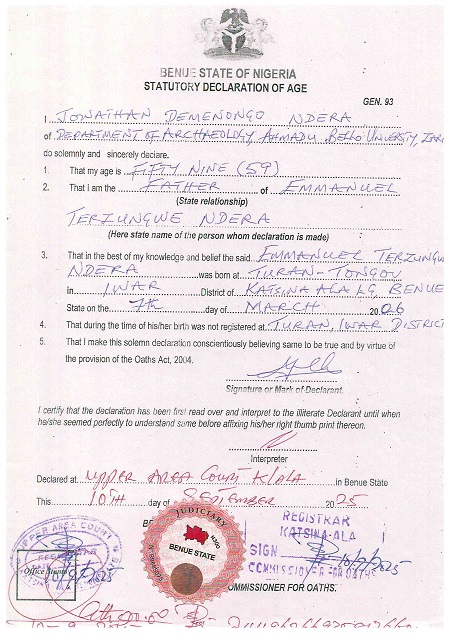 BENUE STATE OF NIGERIA
STATUTORY DECLARATION OF AGE
GEN. 93
I JONATHAN DEMENONGO NDERA
of DEPARTMENT OF ARCHAEOLOGY AHMADU BELLO UNIVERSITY, ZARI
do solemnly and sincerely declare.
1. That my age is FIFTY NINE (59)
2. That I am the FATHER of EMMANUEL
(State relationship)
TERZUNGWE NDERA
(Here state name of the person whom declaration is made)
3. That in the best of my knowledge and belief the said EMMANUEL TERZUNGW
NDERA was born at TURAN-TONGOV
in IWAR District of KATSINA ALA LG, BENUE
State on the 7th day of MARCH 2006
4. That during the time of his/her birth was not registered at TURAN, IWAR DISTRICT
5. That I make this solemn declaration conscientiously believing same to be true and by virtue of
the provision of the Oaths Act, 2004.
Signature or Mark of Declarant.
I certify that the declaration has been first read over and interpret to the illiterate Declarant until when
he/she seemed perfectly to understand same before affixing his/her right thumb print thereon.
Interpreter
Declared at UPPER AREA COURT K/ALA in Benue State
This 10TH day of SEPTEMBER 2025
BE
JUDICIARY
N500
BENUE STATE
UPPER AREA COURT
REGISTRAR
Office Stamp
10/9/2025
REGISTRAR
KATSINA-ALA
SIGN 10/9/2025
COMMISSIONER FOR OATHS
OMMISSIONER FOR OATHS.